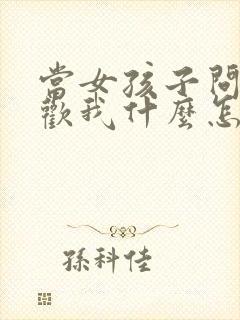 當女孩子問
歡我什麼怎
孫科佳